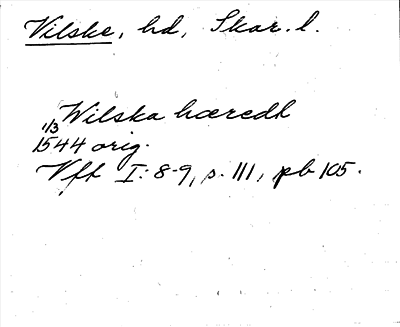 Vilske, hd, Skar. l.
Wilska hæredh
1/3
1544 orig.
Vfh I: 8-9, s. 111, pb 105.